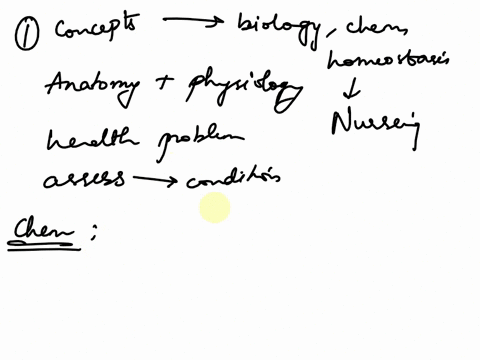 ① Concepts → biology, chem,
homeostasis
↓
Anatomy + physiology
Nursing
health problem
assess → condition
Chem :